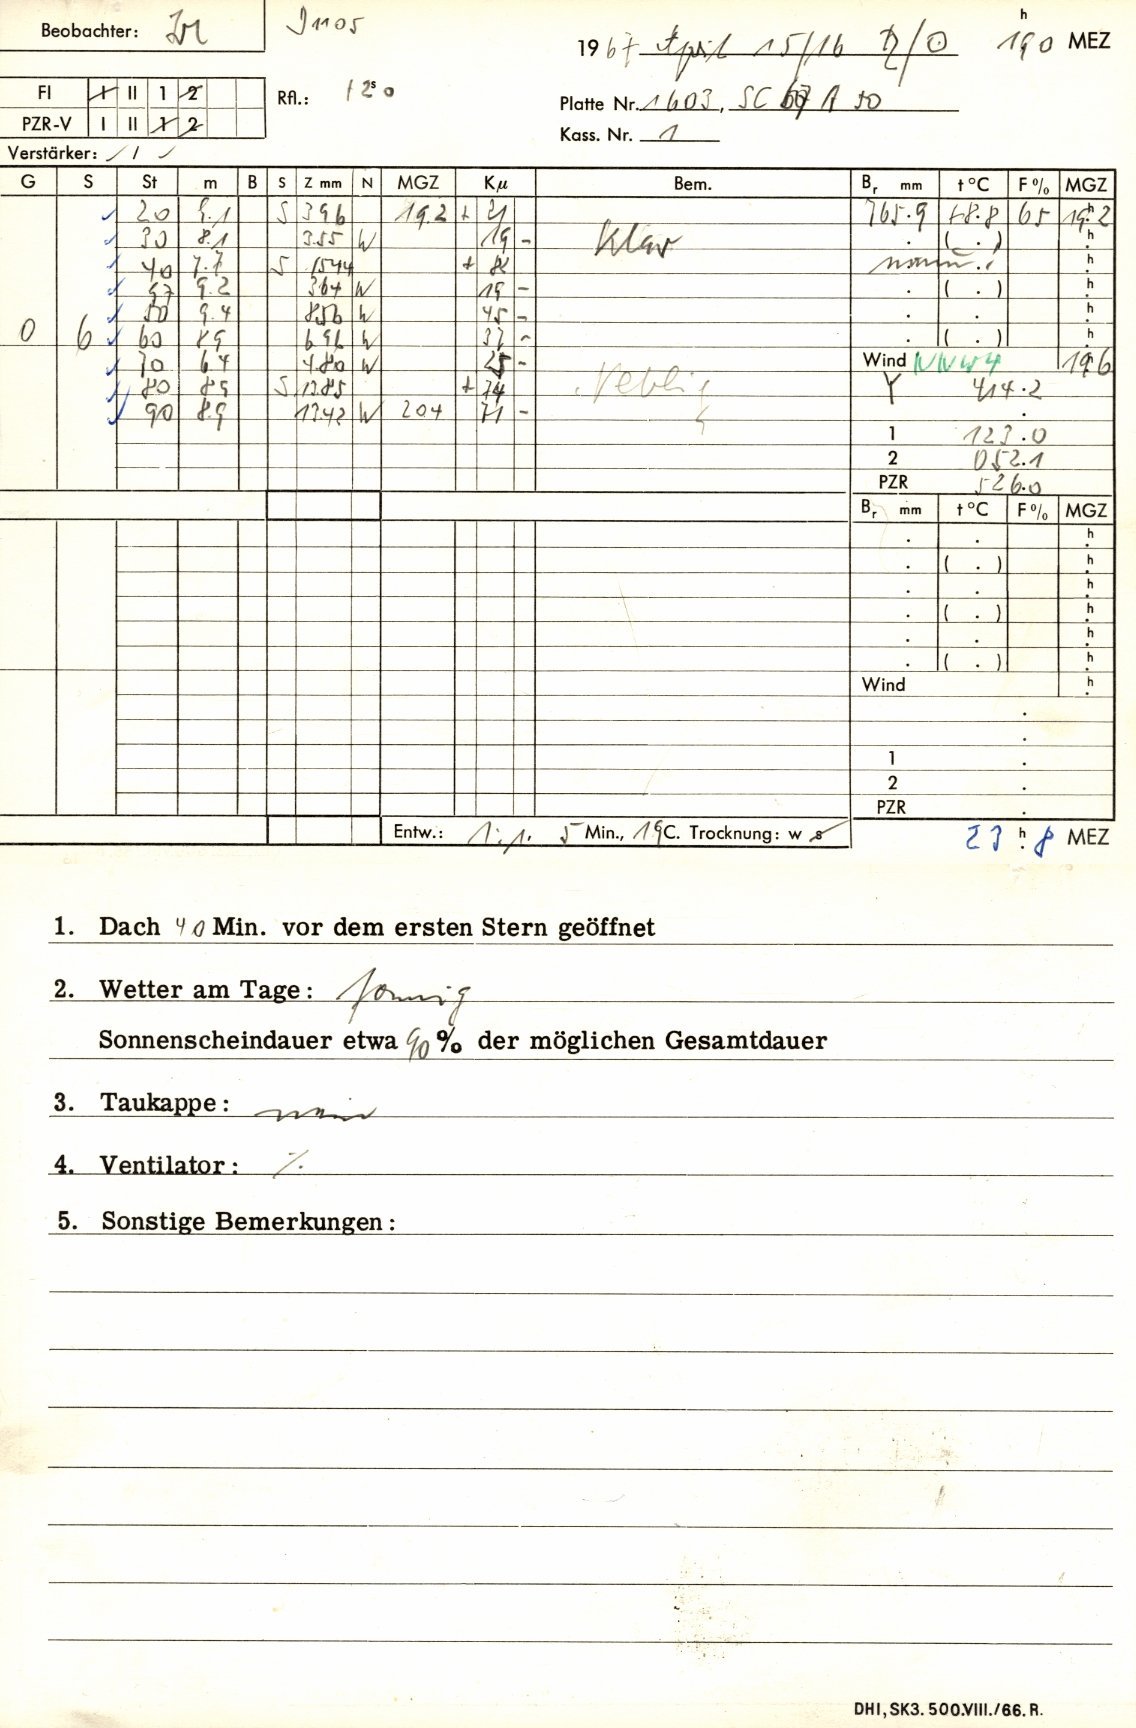 Beobachter:
J 1105
1967 April 15/16 ♄/☉ 19h0 MEZ
FI I II 1 2
Rfl.: +2s0
PZR-V I II 1 2
Platte Nr. 1603, SC 67 A 50
Kass. Nr. 1
Verstärker: / / /
G S St m B S Z mm N MGZ Kμ Bem. Br mm t °C F % MGZ
20 9.1 S 396 19.2 + 21 765.9 +8.8 65 19h2
30 8.1 355 W 19 - Klar ( . ) h
40 7.7 S 1544 + 82 . . h
57 9.2 364 W 19 - . ( . ) h
50 9.4 856 W 45 - . . h
0 6 60 8.9 696 W 37 - ( . ) h
70 6.4 480 W 25 - Wind NNW4 19h6
80 8.9 S 1385 + 74 Neblig Y 414.2
90 8.9 1342 W 204 71 -
1 123.0
2 052.1
PZR 526.0
Br mm t °C F % MGZ
. . h
. ( . ) h
. . h
. ( . ) h
. . h
. ( . ) h
Wind h
1 .
2 .
PZR .
Entw.: 1:1. 5 Min., 19°C. Trocknung: w s
23h8 MEZ
1. Dach 40 Min. vor dem ersten Stern geöffnet
2. Wetter am Tage: sonnig
Sonnenscheindauer etwa 90 % der möglichen Gesamtdauer
3. Taukappe: nein
4. Ventilator: ٪
5. Sonstige Bemerkungen:
DHI, SK3. 500.VIII./66. R.